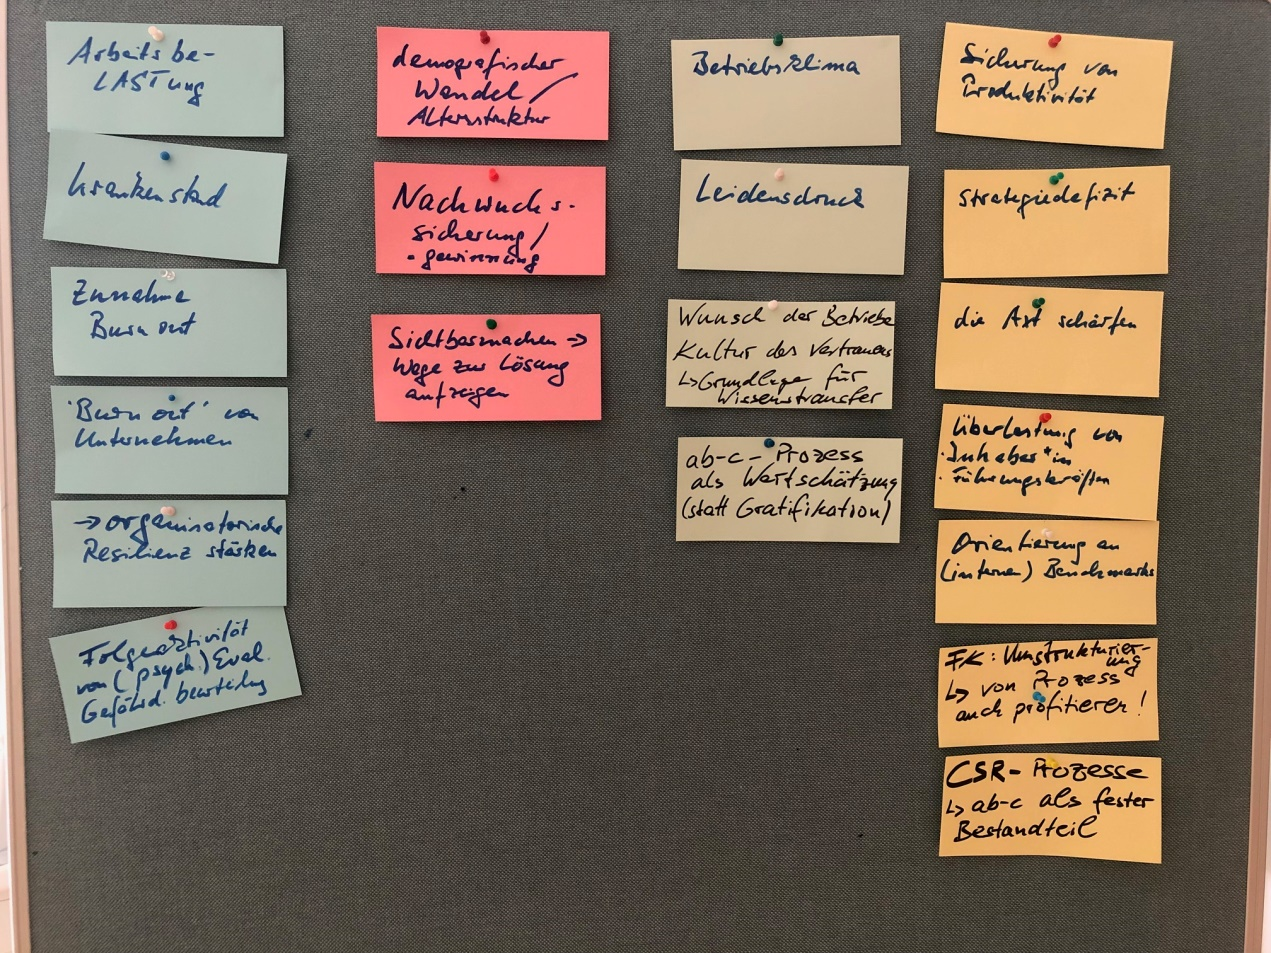 Arbeitsbe-
LASTung
Krankenstand
Zunahme
Burn out
'Burn out' von
Unternehmen
→ organisatorische
Resilienz stärken
Folgeaktivität
von (psych.) Eval.
Gefährd. beurteilung
demografischer
Wandel /
Altersstruktur
Nachwuchs-
sicherung /
-gewinnung
Sichtbarmachen →
Wege zur Lösung
aufzeigen
Betriebsklima
Leidensdruck
Wunsch der Betriebe
Kultur des Vertrauens
↳ Grundlage für
Wissenstransfer
ab-c-Prozess
als Wertschätzung
(statt Gratifikation)
Sicherung von
Produktivität
Strategiedefizit
die Axt schärfen
Überlastung von
·Inhaber*in
·Führungskräften
Orientierung an
(internen) Benchmarks
FK: Umstrukturier-
ung
↳ von Prozess
auch profitieren!
CSR-Prozesse
↳ ab-c als fester
Bestandteil